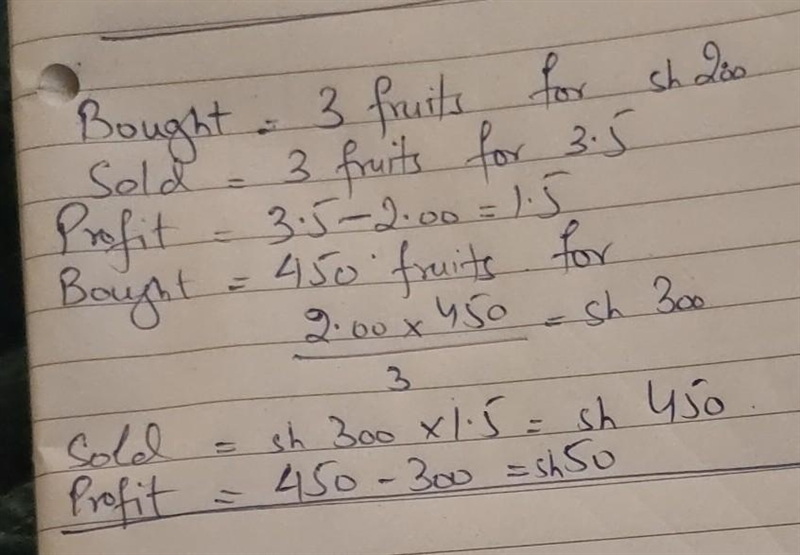 Bought = 3 fruits for sh 200
Sold = 3 fruits for 3.5
Profit = 3.5 - 2.00 = 1.5
Bought = 450 fruits for
2.00 x 450 = sh 300
3
Sold = sh 300 x 1.5 = sh 450.
Profit = 450 - 300 = sh 50